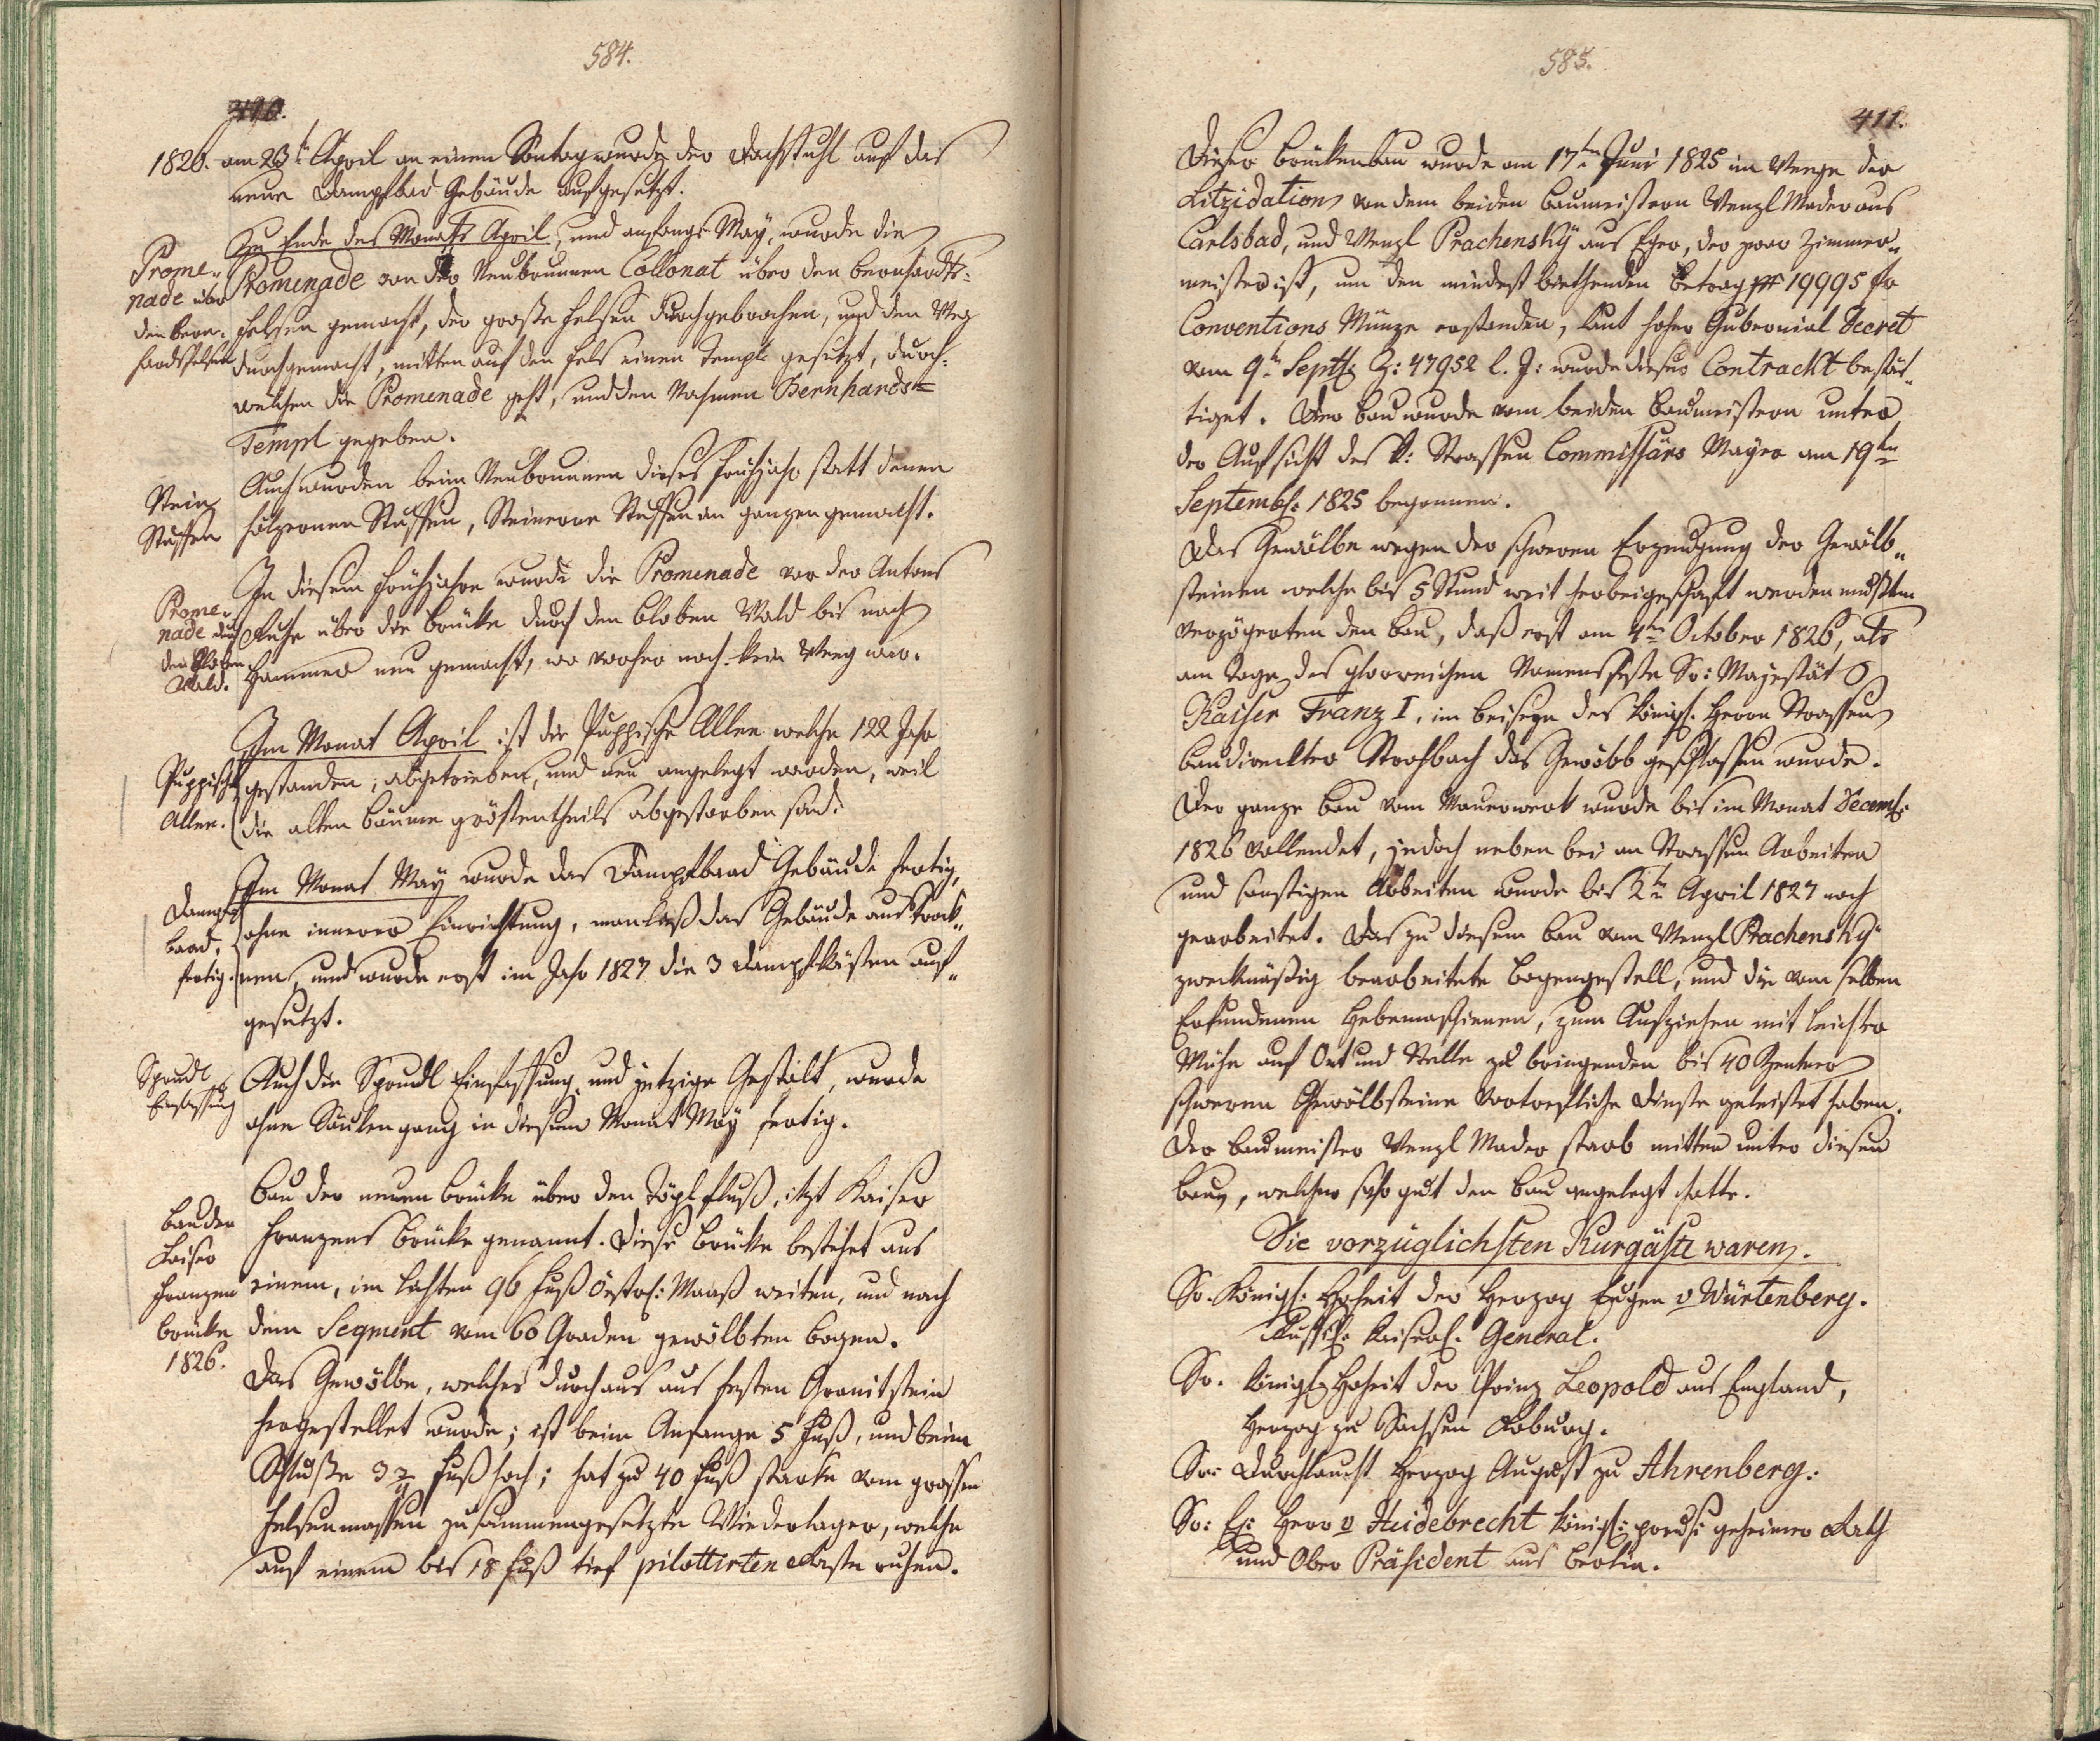 584.
410.
1826. am 23t April an einen Sontag wurde der Dachstuhl auf das
neue Dampfbad Gebäude aufgesetzt.
Zu Ende des Monats April, und anfangs May, wurde die
Prome-
nade über
den Bern-
hardsfelsen
Promenade von der Neubrunnen Collonat über den Bernhardts-
felsen gemacht, der große Felsen durchgebrochen, und den Weg
durchgemacht, mitten auf den Fels einen Templ gesetzt, durch-
welchen die Promenade geht, und den Nahmen Bernhards-
Templ gegeben.
Stein
Staffen
Auch wurden beim Neubrunnen dieses Frühjahr statt denen
hölzernen Staffen, Steinerne Staffen an ganzen gemacht.
Prome-
nade durch
den Bloben
Wald.
In diesem Frühjahre wurde die Promenade von der Antons
Ruhe über die Brücke durch den bloben Wald bis nach
Hammer neu gemacht, wo vorher noch kein Weeg war.
Puppische
Allee.
Im Monat April ist die Puppische Allee welche 122 Jahr
gestanden, abgetrieben, und neu angelegt worden, weil
die alten Bäume gröstentheils abgestorben sind.
Dampf
baad,
fertig.
Im Monat May wurde das Dampfbaad Gebäude fertig,
ohne innerer Einrichtung, man ließ das Gebäude austrock-
nen, und wurde erst im Jahr 1827 die 3 Dampfkästen auf-
gesetzt.
Sprudl
Einfassung
Auch die Sprudl Einfassung und jetzige Gestalt, wurde
ohne Säulengang in diesem Monat May fertig.
Bau der
Kaiser
Franzen
brücke
1826.
Bau der neuen Brücke über den Töplfluß, itzt Kaiser
Franzens Brücke genannt. Diese Brücke bestehet aus
einem, im lichten 96 Fuß östrch: Maaß weiten, und nach
dem Segment vom 60 Graden gewölbten bogen.
Das Gewölbe, welches durchaus aus festen Granitstein
hergestellet wurde; ist beim Anfange 5 Fuß, und beim
Schluße 3 3/4 Fuß hoch; hat zu 40 Fuß starke vom grossen
Felsenmassen zusammengesetzte Wiederlager, welche
auf einem bis 18 Fuß tief pilottirten Roste ruhen.
585.
411.
Dieser Brückenbau wurde am 17ten Juni 1825 im Weege der
Litzidation von dem beiden Baumeistern Wenzl Mader aus
Carlsbad, und Wenzl Prachensky aus Eger, der zwar Zimmer-
meister ist, um den mindest biethenden Betrag 19995 fr
Conventions Münze erstanden, laut hoher Gubernial Decret
vom 9tn Septb: Z: 47952 l. J: wurde dieser Contrackt bestät-
tiget. Der Bau wurde vom beiden Baumeistern unter
der Aufsicht des k: Strassen Commissärs Mayer am 19ten
Septemb: 1825 begonnen.
Das Gewölbe wegen der schweren Erzeugung der Gewölb-
steinen welche bis 5 Stund weit herbeigeschaft werden mußten
verzögerten den Bau, daß erst am 4ten October 1826, als
am Tage des glorreichen Namensfeste Sr: Majestät
Kaiser Franz I, im beisein des königl. Herrn Strassen
baudirecktor Strohbach das Gewölb geschlossen wurde.
Der ganze Bau vom Mauerwerk wurde bis im Monat Decemb:
1826 vollendet, jedoch neben bei an Strassen Arbeiten
und sonstigen Arbeiten wurde bis 2tn April 1827 noch
gearbeitet. Das zu diesem Bau vom Wenzl Prachensky
zweckmäßig bearbeitete bogengestell, und die vom selben
Erfundenen Hebemaschienen, zum Aufziehen mit leichter
Mühe auf Ort und Stelle zu bringenden bis 40 Zentner
schweren Gewölbsteine vortrefliche Dienste geleistet haben.
Der Baumeister Wenzl Mader starb mitten unter diesen
Baue, welcher sehr gut den Bau angelegt hatte.
Die vorzüglichsten Kurgäste waren.
Sr. Königl: Hoheit der Herzog Eugen v Würtenberg.
Russch: Kaiserl: General.
Sr. Königl Hoheit der Prinz Leopold aus England,
Herzog zu Sachsen Koburg.
Sr: Durchlaucht Herzog August zu Ahrenberg.
Sr: Ex: Herr v Heidebrecht königl: preus: geheimer Rath
und Ober Präsident aus Berlin.